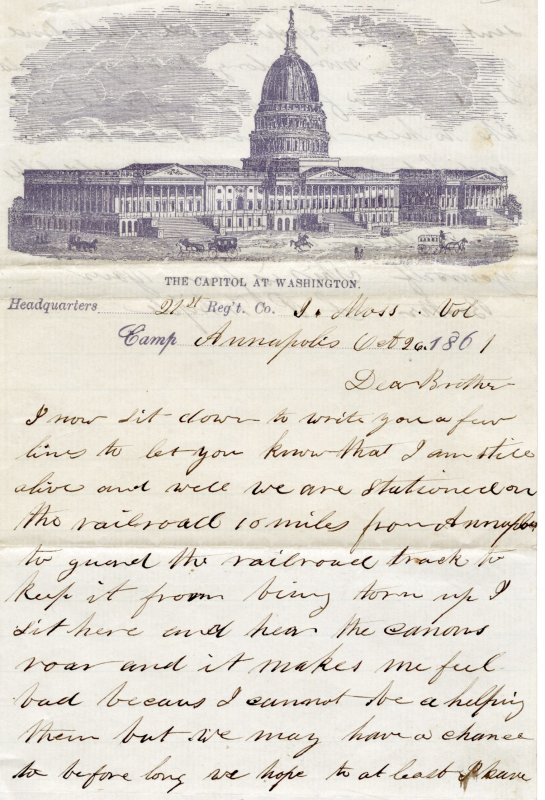 THE CAPITOL AT WASHINGTON.
Headquarters 21st Reg't. Co. I. Mass. Vol
Camp Annapolis Oct 26. 1861
Dear Brother
I now sit down to write you a few
lines to let you know that I am still
alive and well we are stationed on
the railroad 10 miles from Annapolis
to guard the railroad track to
keep it from being torn up I
sit here and hear the canons
roar and it makes me feel
bad becaus I cannot be a helping
them but we may have a chance
to before long we hope to at least I have